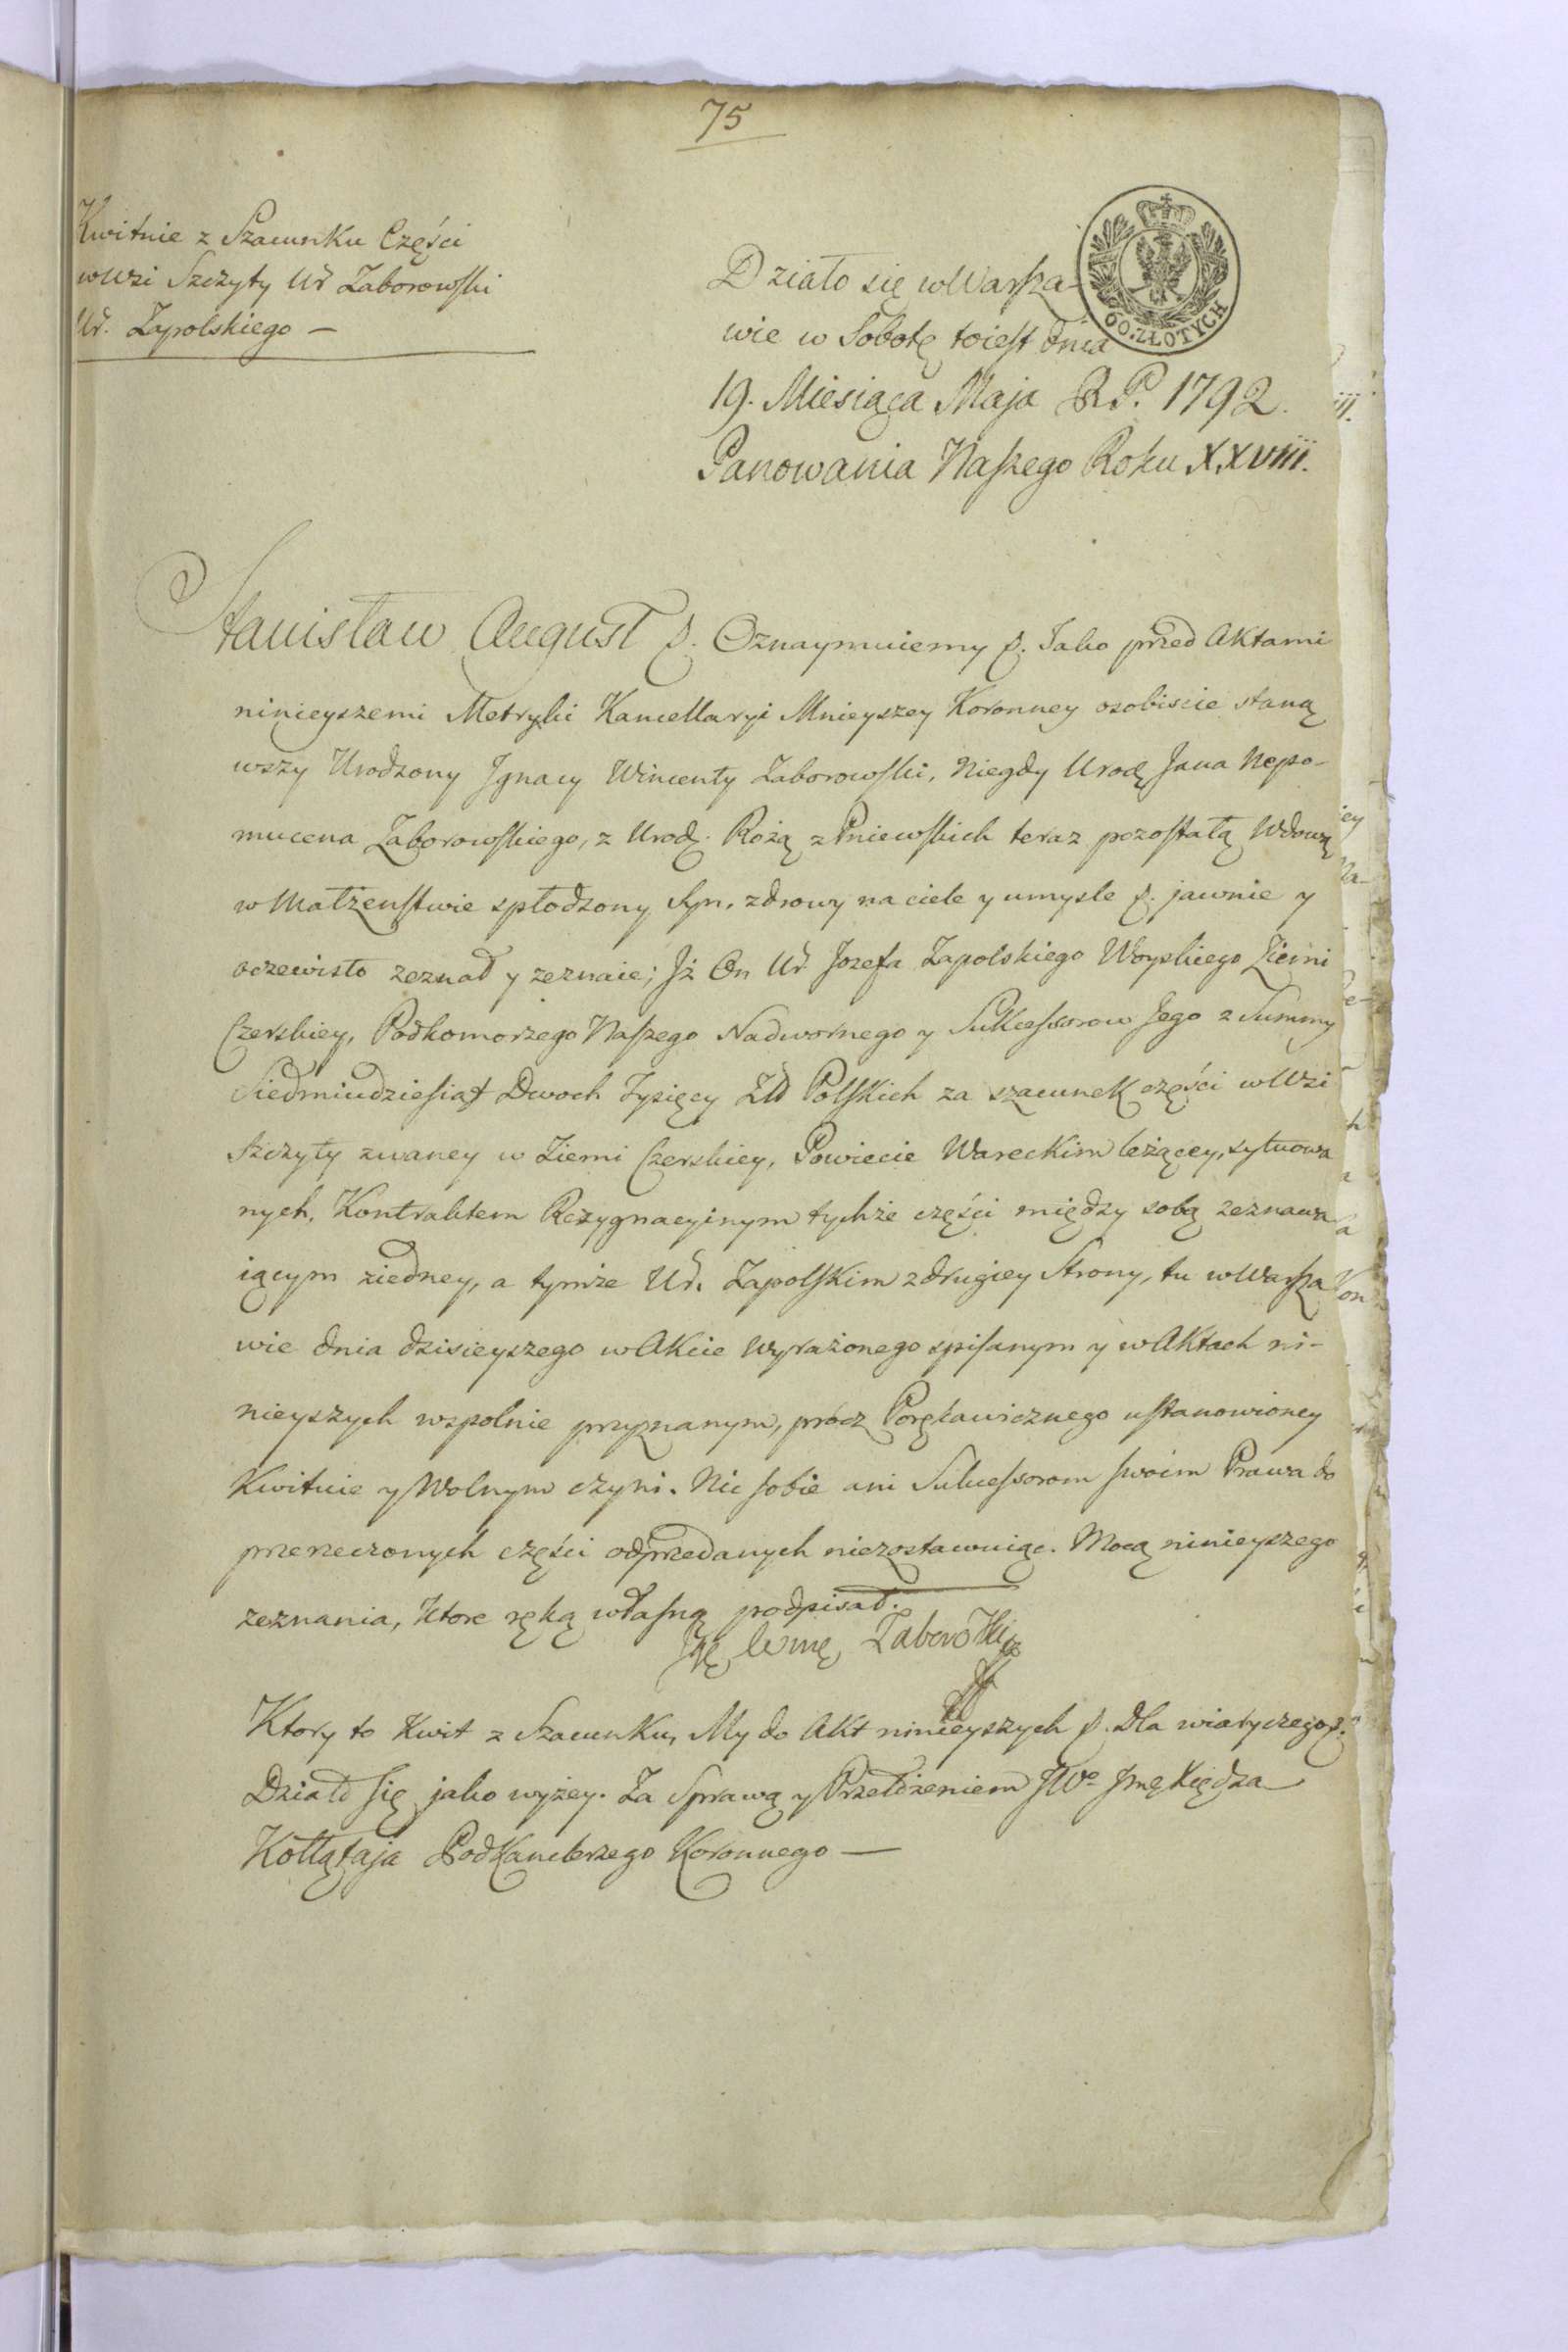 75
Kwitnie z Szacunku Części
w Wsi Szczyty Ur Zaborowski
Ur. Zapolskiego —
60. ZŁOTYCH
Działo się w Warsza-
wie w Sobotę toiest dnia
19. Miesiąca Maja R.P. 1792.
Panowania Naszego Roku XXVIII.
Stanisław August p. Oznaymuiemy p. Jako przed Aktami
ninieyszemi Metryki Kancellaryi Mnieyszey Koronney osobiscie staną
wszy Urodzony Jgnacy Wincenty Zaborowski, Niegdy Urodz Jana Nepo-
mucena Zaborowskiego, z Urodz. Rożą z Pniewskich teraz pozostałą Wdową
w Małżenstwie spłodzony Syn, zdrowy na ciele y umysle p. jawnie y
oczewisto zeznał y zeznaie; Jż On Ur Jozefa Zapolskiego Woyskiego Ziemi
Czerskiey, Podkomorzego Naszego Nadwornego y Sukcessorow Jego z Summy
Siedmiudziesiąt Dwoch Tysięcy Zł Polskich za szacunek części w Wsi
Szczyty zwaney w Ziemi Czerskiey, Powiecie Wareckim leżącey, sytuowa
nych, Kontraktem Rezygnacyinym tychże części między sobą zeznawa
iącym ziedney, a tymże Ur. Zapolskim z drugiey Strony, tu w Warsza
wie dnia dzisieyszego w Akcie wyrażonego spisanym y w Aktach ni-
nieyszych wspolnie przyznanym, prócz Porękawicznego ustanowioney
Kwituie y Wolnym czyni. Nic sobie ani Sukcessorom swoim Prawa do
przerzeczonych części odprzedanych niezostawuiąc. Mocą ninieyszego
zeznania, ktore ręką własną podpisał.
Zaborowski
Ktory to Kwit z Szacunku, My do Akt ninieyszych p. Dla wiary czego p.
Działo się jako wyżey. Za Sprawą y Przełożeniem JWo Jmę Xiędza
Kołłątaja Podkanclerzego Koronnego —